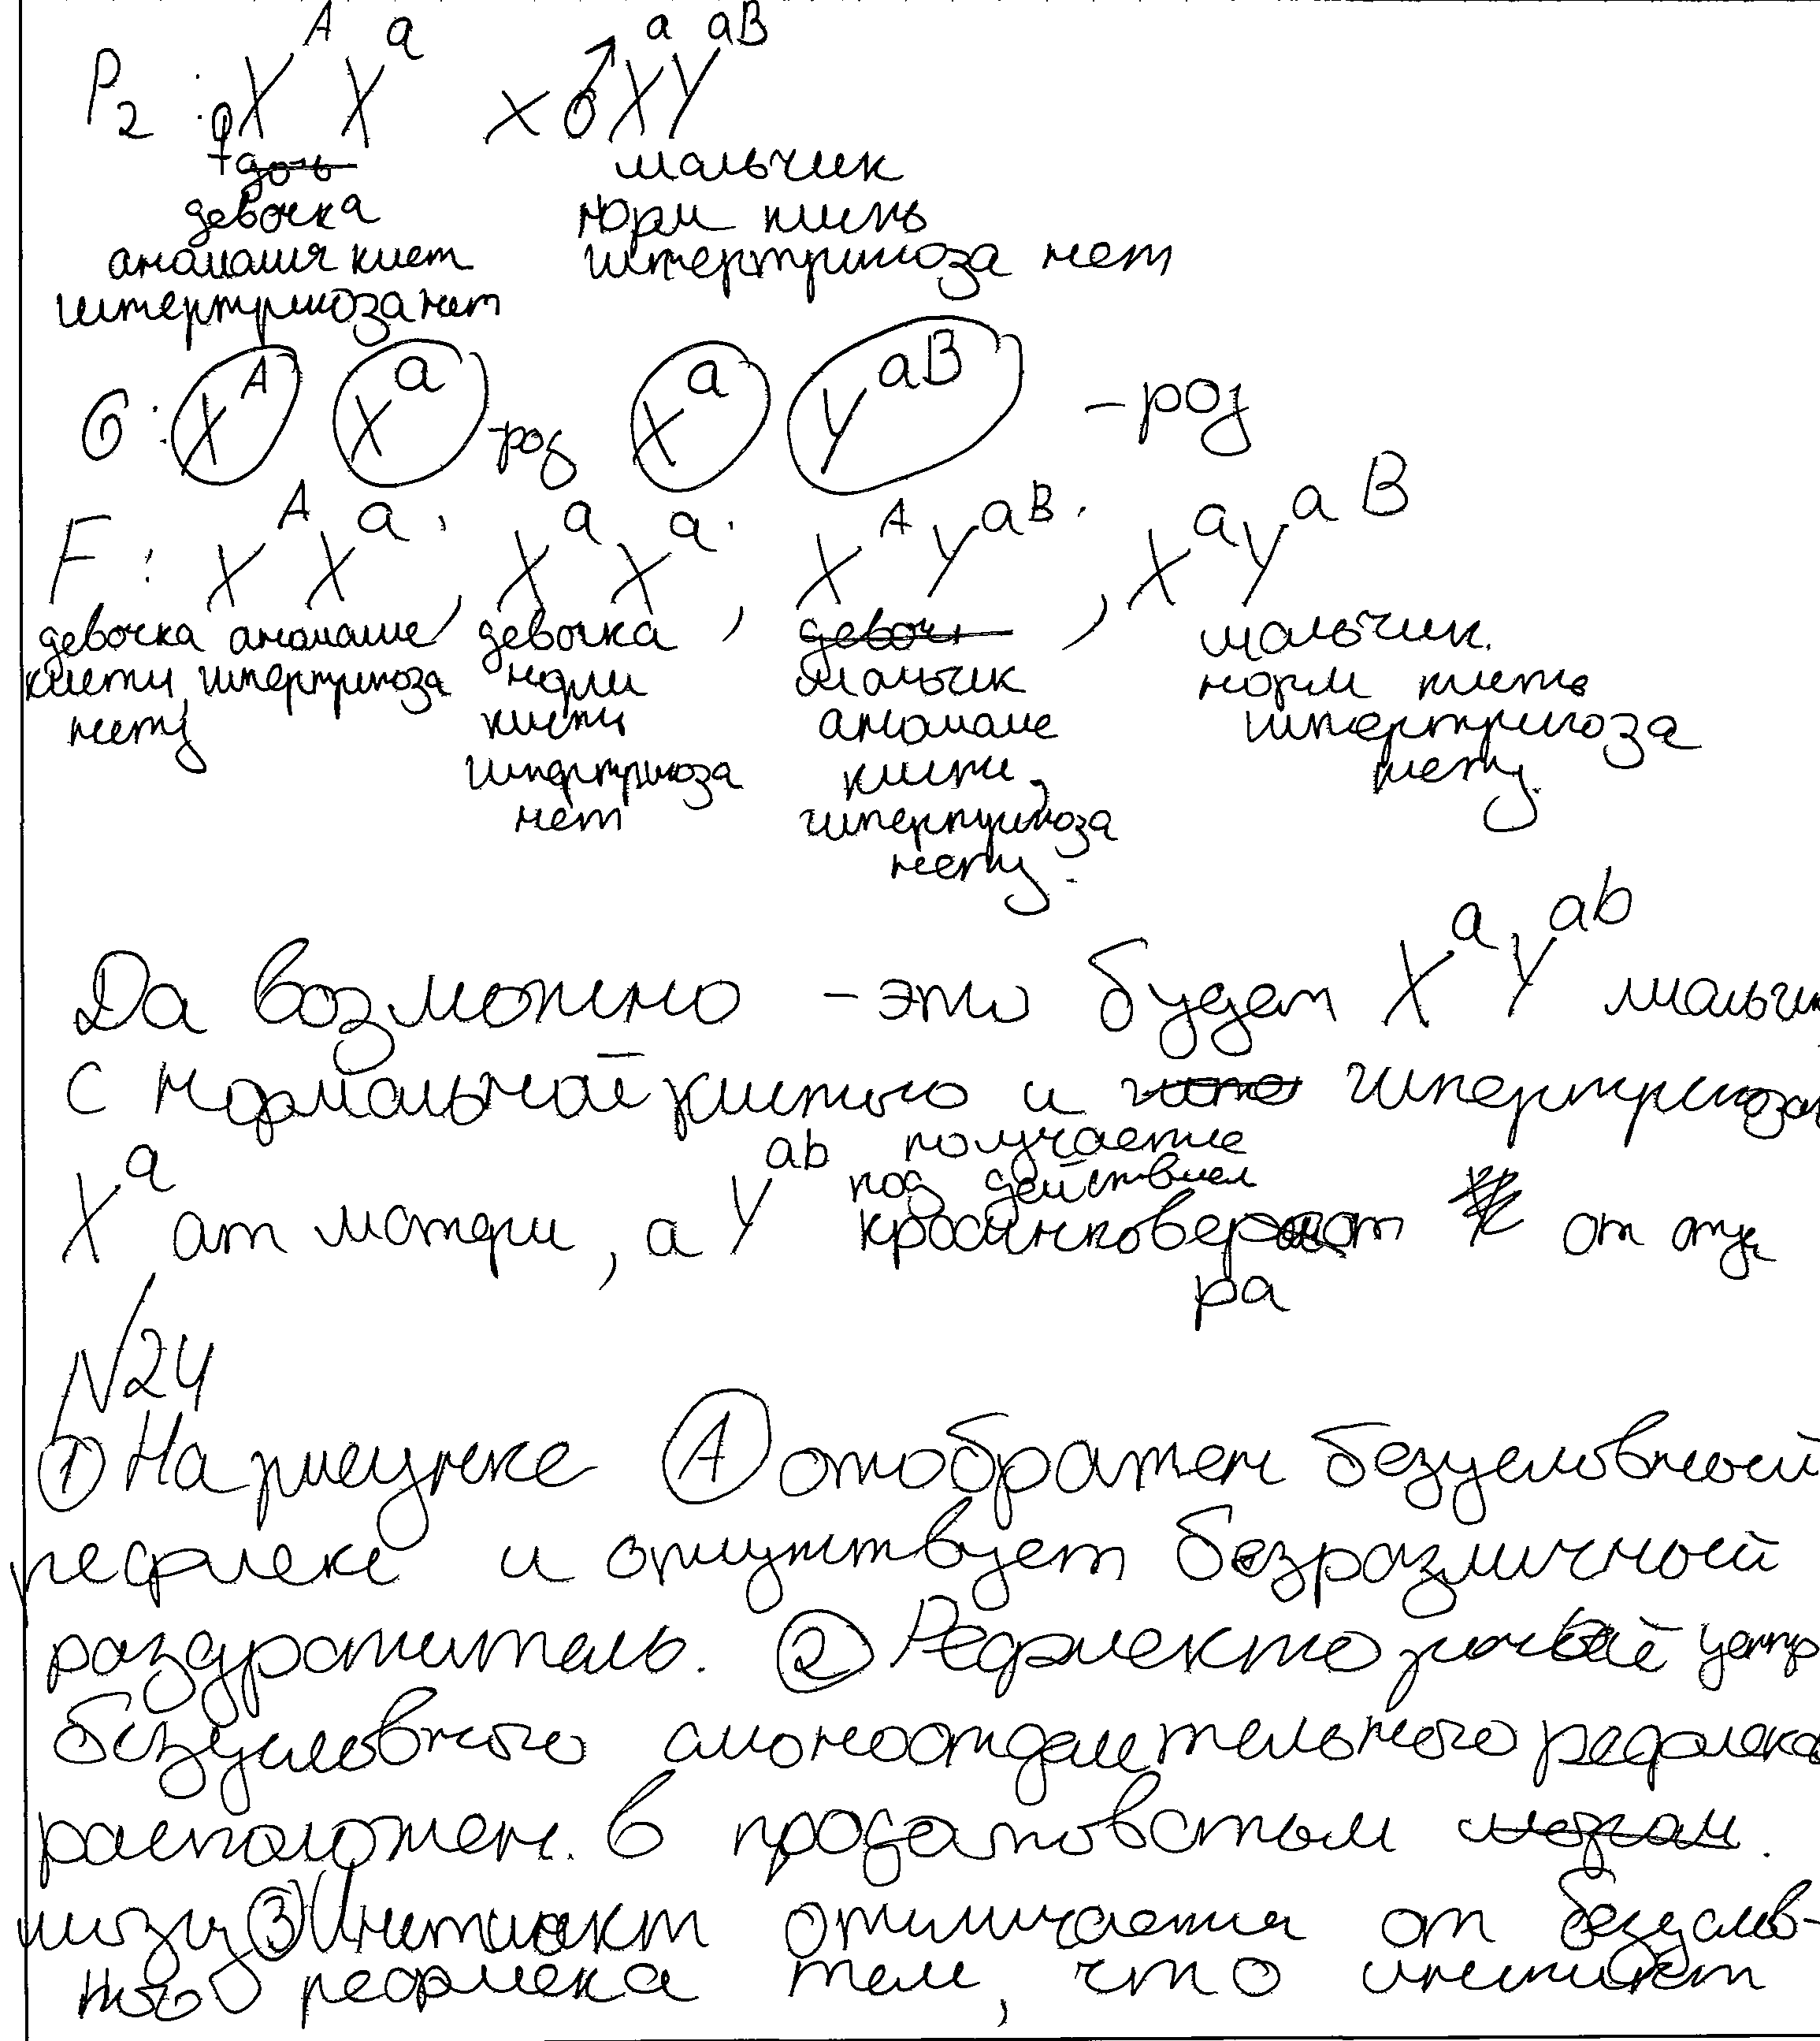 P₂ : ♀ X^A X^a × ♂ X^a Y^aB
дочь мальчик
девочка норм кисть
аномалия кист гипертрихоза нет
гипертрихоза нет
G : X^A X^a -роз X^a Y^aB - роз
F : X^A X^a , X^a X^a , X^A Y^aB , X^a Y^aB
девочка аномалие , девочка , девочк , мальчик.
кисти, гипертрихоза норм мальчик норм кисть
нету кисти аномалие гипертрихоза
гипертрихоза кисти, нету.
нет гипертрихоза
нету.
Да возможно - это будет X^a Y^ab мальчи
с нормальной кистью и гипертрихозом
X^a от матери, а Y^ab получается под действием кроссинговера от отца
№24
① На рисунке Ⓐ отображен безусловный
рефлекс и отсутствует безразличный
раздражитель. ② Рефлекторный центр
безусловного слюноотделительного рефлекса
расположен в продолговатым мозгам.
мозгу ③ Инстинкт отличается от безуслов-
ного рефлекса тем, что инстинкт